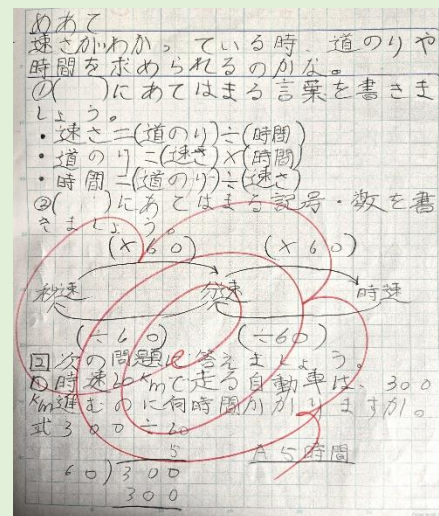 めあて
速さがわかっている時、道のりや
時間を求められるのかな。
①( )にあてはまる言葉を書きま
しょう。
・速さ=(道のり)÷(時間)
・道のり=(速さ)×(時間)
・時間=(道のり)÷(速さ)
②( )にあてはまる記号・数を書
きましょう。
(×60) (×60)
秒速 分速 時速
(÷60) (÷60)
回次の問題に答えましょう。
①時速60kmで走る自動車は、300
km進むのに何時間かかりますか。
式 300÷60
5 A 5時間
60)300
300